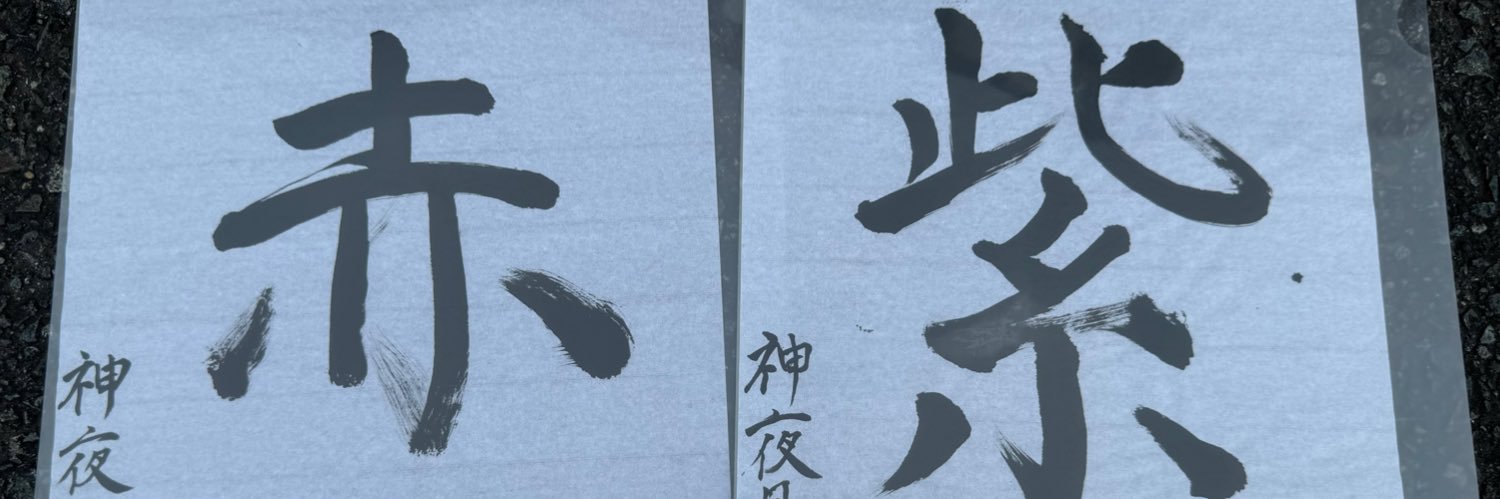 赤
神夜
紫
神夜